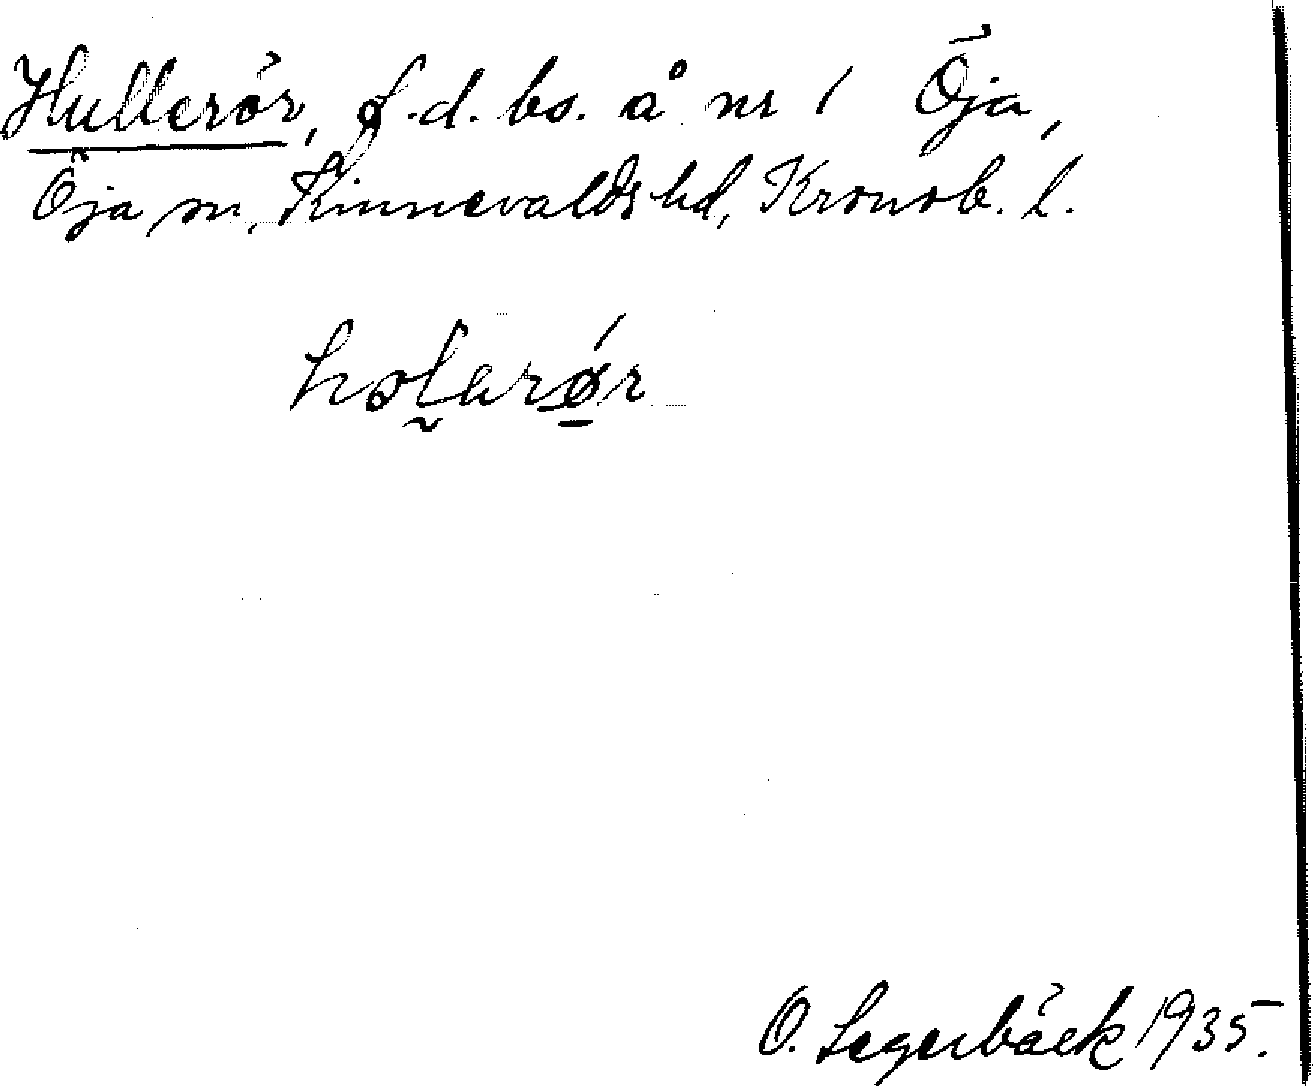 Hullerör, f.d. bs. å nr 1 Öja,
Öja sn, Kinnevalds hd, Kronob. l.
holarǿr
O. Segerbäck 1935.